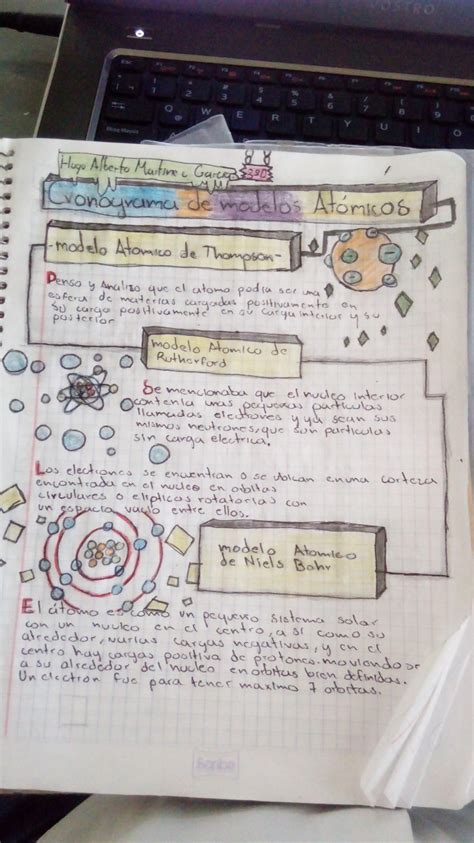 VOSTRO
Hugo Alberto Martinez Garcia
230
Cronograma de modelos Atómicos
-modelo Atomico de Thompson-
Penso y Analiso que el atomo podia ser una
esfera de materias cargadas positivamente en
su cargo positivamente en su carga interior y su
posterior
modelo Atomico de
Rutherford
Se mencionaba que el nucleo interior
contenia unas pequeñas particulas
llamadas electrones y ya sean sus
mismos neutrones, que son particulas
sin carga electrica.
Los electrones se encuentran o se ubican en una corteza
encontrada en el nucleo en orbitas
circulares o elipticas rotatorias con
un espacio vacio entre ellos.
modelo Atomico
de Niels Bohr
El átomo es como un pequeño sistema solar
con un nucleo en el centro, a sí como su
alrededor, varias cargas negativas, y en el
centro hay cargas positiva de protones. moviendose
a su alrededor del nucleo en orbitas bien definidas.
Un electron fue para tener maximo 7 orbitas.